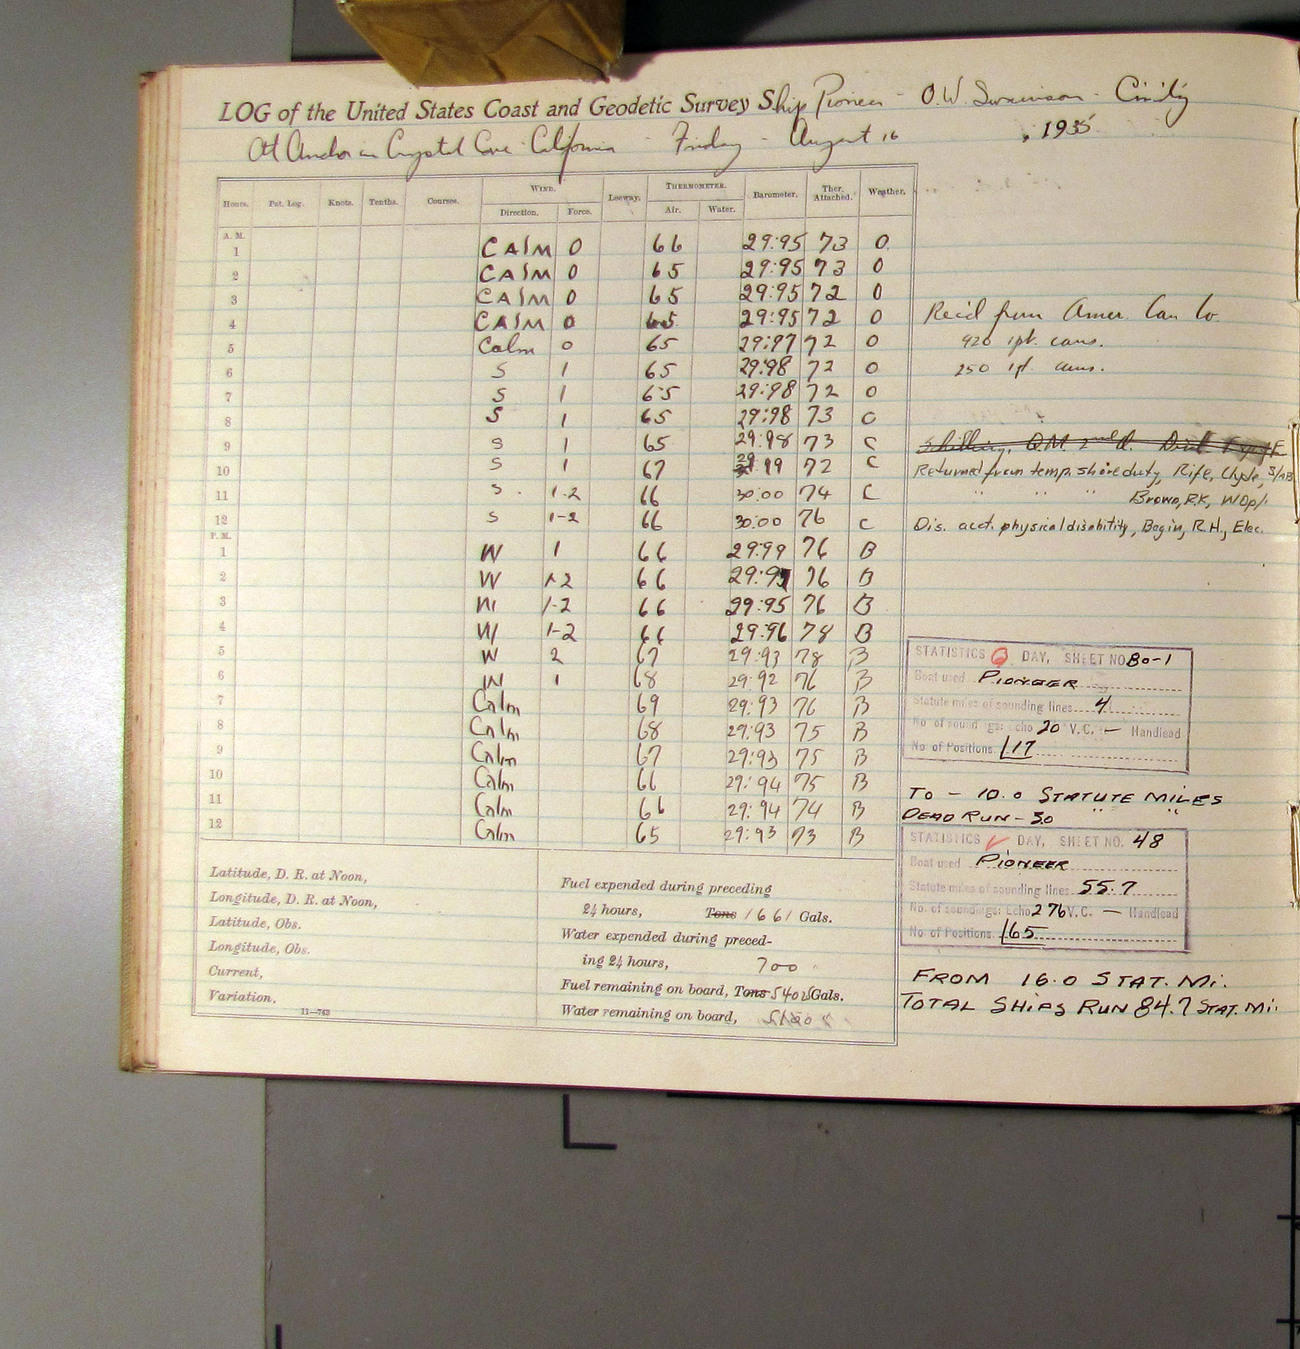 LOG of the United States Coast and Geodetic Survey Ship Pioneer - O.W. Swainson - Cmdg
At Anchor in Crystal Cove - California - Friday - August 16, 1935
Hours. Pat. Log. Knots. Tenths. Courses. WIND. Leeway. THERMOMETER. Barometer. Ther. Attached. Weather.
Direction. Force. Air. Water.
A. M.
1 CAlM 0 66 29:95 73 0
2 CAlM 0 65 29:95 73 0
3 CAlM 0 65 29:95 72 0
4 CAlM 0 65 29:95 72 0
5 Calm 0 65 29:97 72 0
6 S 1 65 29:98 72 0
7 S 1 65 29:98 72 0
8 S 1 65 29:98 73 C
9 S 1 65 29:98 73 C
10 S 1 67 29:99 72 C
11 S 1-2 66 30:00 74 C
12 S 1-2 66 30:00 76 C
P. M.
1 W 1 66 29:99 76 B
2 W 1-2 66 76 B
3 W 1-2 66 29:95 76 B
4 W 1-2 66 29:96 78 B
5 W 2 67 29:93 78 B
6 W 1 68 29:92 76 B
7 Calm 69 29:93 76 B
8 Calm 68 29:93 75 B
9 Calm 67 29:93 75 B
10 Calm 66 29:94 75 B
11 Calm 66 29:94 74 B
12 Calm 65 29:93 73 B
Latitude, D. R. at Noon,
Longitude, D. R. at Noon,
Latitude, Obs.
Longitude, Obs.
Current,
Variation,
11—763
Fuel expended during preceding
24 hours, Tons 1661 Gals.
Water expended during preced-
ing 24 hours, 700
Fuel remaining on board, Tons Gals.
Water remaining on board,
Rec'd from Amer. Can Co
920 1pt. cans.
250 cans.
Q.M. 2nd
Returned from temp. shore duty, Rife, Clyde,
" " " Brown, R.K,
Dis. acct. physical disability, Begin, R.H., Elec.
STATISTICS DAY, SHEET NO. 80-1
Boat used PIONEER
Statute miles of sounding lines 4
No. of soundings: Echo 20 V.C. — Handlead
No. of Positions 17
TO - 10.0 STATUTE MILES
DEAD RUN - 30 " "
STATISTICS DAY, SHEET NO. 48
Boat used PIONEER
Statute miles of sounding lines 55.7
No. of soundings: Echo 276 V.C. — Handlead
No. of Positions 165
FROM 16.0 STAT. Mi.
TOTAL SHIPS RUN 84.7 STAT. Mi.